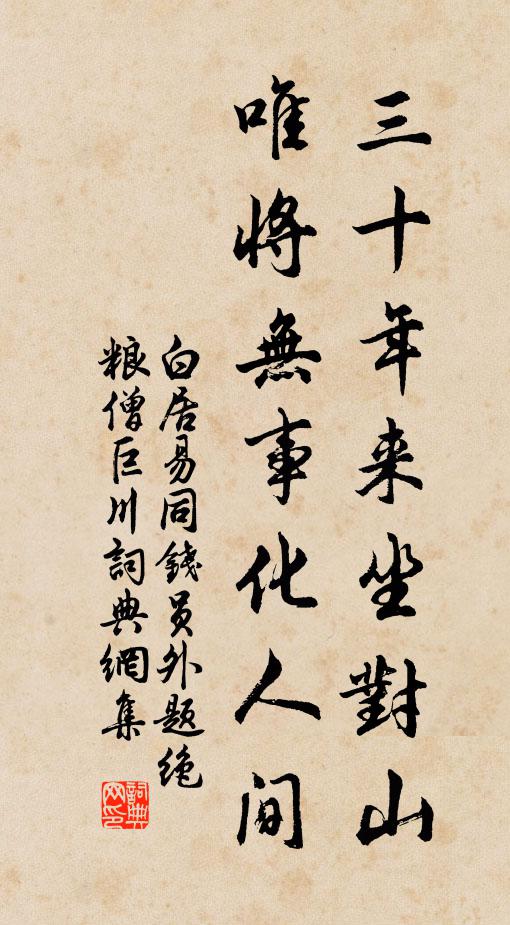 三十年来坐對山
唯將無事化人间
白居易同錢员外题绝
粮僧巨川詞典網集
詞典网印